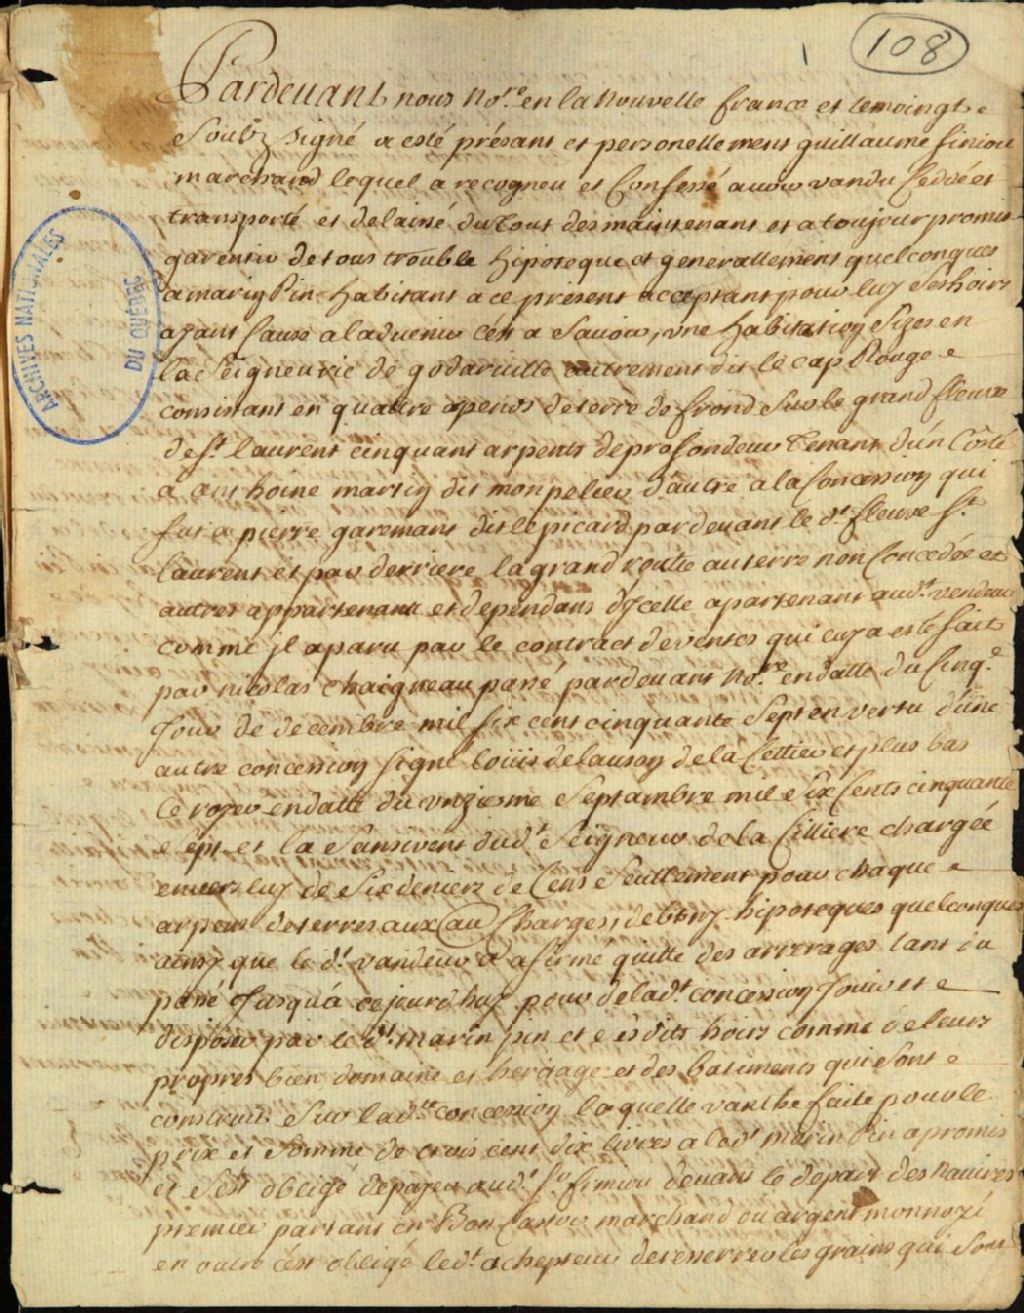 108
Pardevant nous No.re en la nouvelle france et temoingts
Soubz Signé a esté présant et personellement guillaume finiou
marchand lequel a recogneu et Confessé avoir vandu Ceddé et
transporté et delaissé du tout des maintenant et a toujour promis
garentir de tous trouble hipoteque et generallement quelconques
a marin Pin habitant a ce présent acceptant pour luy Ses hoirs
ayant Cause a ladvenir c'est a Savoir, une habitation Sizes en
la Seigneurie de godarville autrement dit le cap Rouge
consistant en quattre apents de terre de frond Sur le grand fleuve
de St. laurent cinquant arpents de profondeur tenant d'un Côsté
a anthoine martin dit monpelier d'autre a la Concession qui
fut a pierre garemant dit le picard par devant le d.t fleuve St.
laurent et par derriere la grand routte au terre non Concedée et
autres appartenant et dependans d'jcelle apartenant aud.t vendeur
comme jl aparu par le contract de ventes qui luy a esté fait
par nicolas Chaigneau passé pardevant No.re en datte du Cinq.e
Jour de decembre mil six cent cinquante Sept en vertu d'une
autre concession signé louiis delauson de la Cittier et plus bas
le royer en datte du unziesme Septambre mil Six Cents cinquante
Sept et la Sansivent dud.t Seigneur de la Cittiere chargée
envers luy de Six deniers de Cens Seullement pour chaque
arpent de terres aux Charges, debtes, hipoteques quelconques
ainsy que le d.t vandeur a afirmé quitte des arrerages tant du
passé Jusqu'á ce jourd'huy pour de lad.t concession Jouir et
disposer par le d.t marin pin et ses dits hoirs comme de leurs
propres bien domaine et heritage et des batiments qui sont
construits Sur lad.te concession laquelle vanthe faite pour le
prix et Somme de trois cent dix livres a lad.t marin Pin a promis
et s'est obligé depayer aud.t Sr. finiou devant le depart des navires
premier partant en Bon Castor marchand ou argent monnoyé
en outre c'est obligé led.t achepteur de reserrer les grains qui Sont
ARCHIVES NATIONALES
DU QUÉBEC